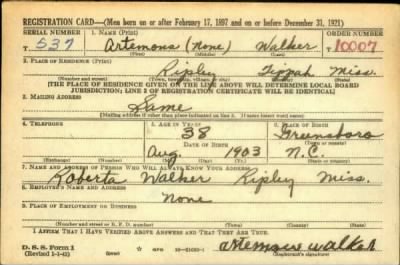 REGISTRATION CARD—(Men born on or after February 17, 1897 and on or before December 31, 1921)
SERIAL NUMBER 1. NAME (Print) ORDER NUMBER
T 537 Artemons (None) Walker T 10007
(First) (Middle) (Last)
2. PLACE OF RESIDENCE (Print)
Ripley Tippah Miss.
(Number and street) (Town, township, village, or city) (County) (State)
[THE PLACE OF RESIDENCE GIVEN ON THE LINE ABOVE WILL DETERMINE LOCAL BOARD
JURISDICTION; LINE 2 OF REGISTRATION CERTIFICATE WILL BE IDENTICAL]
3. MAILING ADDRESS
Same
[Mailing address if other than place indicated on line 2. If same insert word same]
4. TELEPHONE 5. AGE IN YEARS 6. PLACE OF BIRTH
38 Greensboro
DATE OF BIRTH (Town or county)
Aug. 1903 N.C.
(Exchange) (Number) (Mo.) (Day) (Yr.) (State or country)
7. NAME AND ADDRESS OF PERSON WHO WILL ALWAYS KNOW YOUR ADDRESS
Roberta Walker Ripley Miss.
8. EMPLOYER'S NAME AND ADDRESS
None
9. PLACE OF EMPLOYMENT OR BUSINESS
(Number and street or R. F. D. number) (Town) (County) (State)
I AFFIRM THAT I HAVE VERIFIED ABOVE ANSWERS AND THAT THEY ARE TRUE.
D. S. S. Form 1 GPO Walker
(Revised 1-1-42) (over) (Registrant's signature)